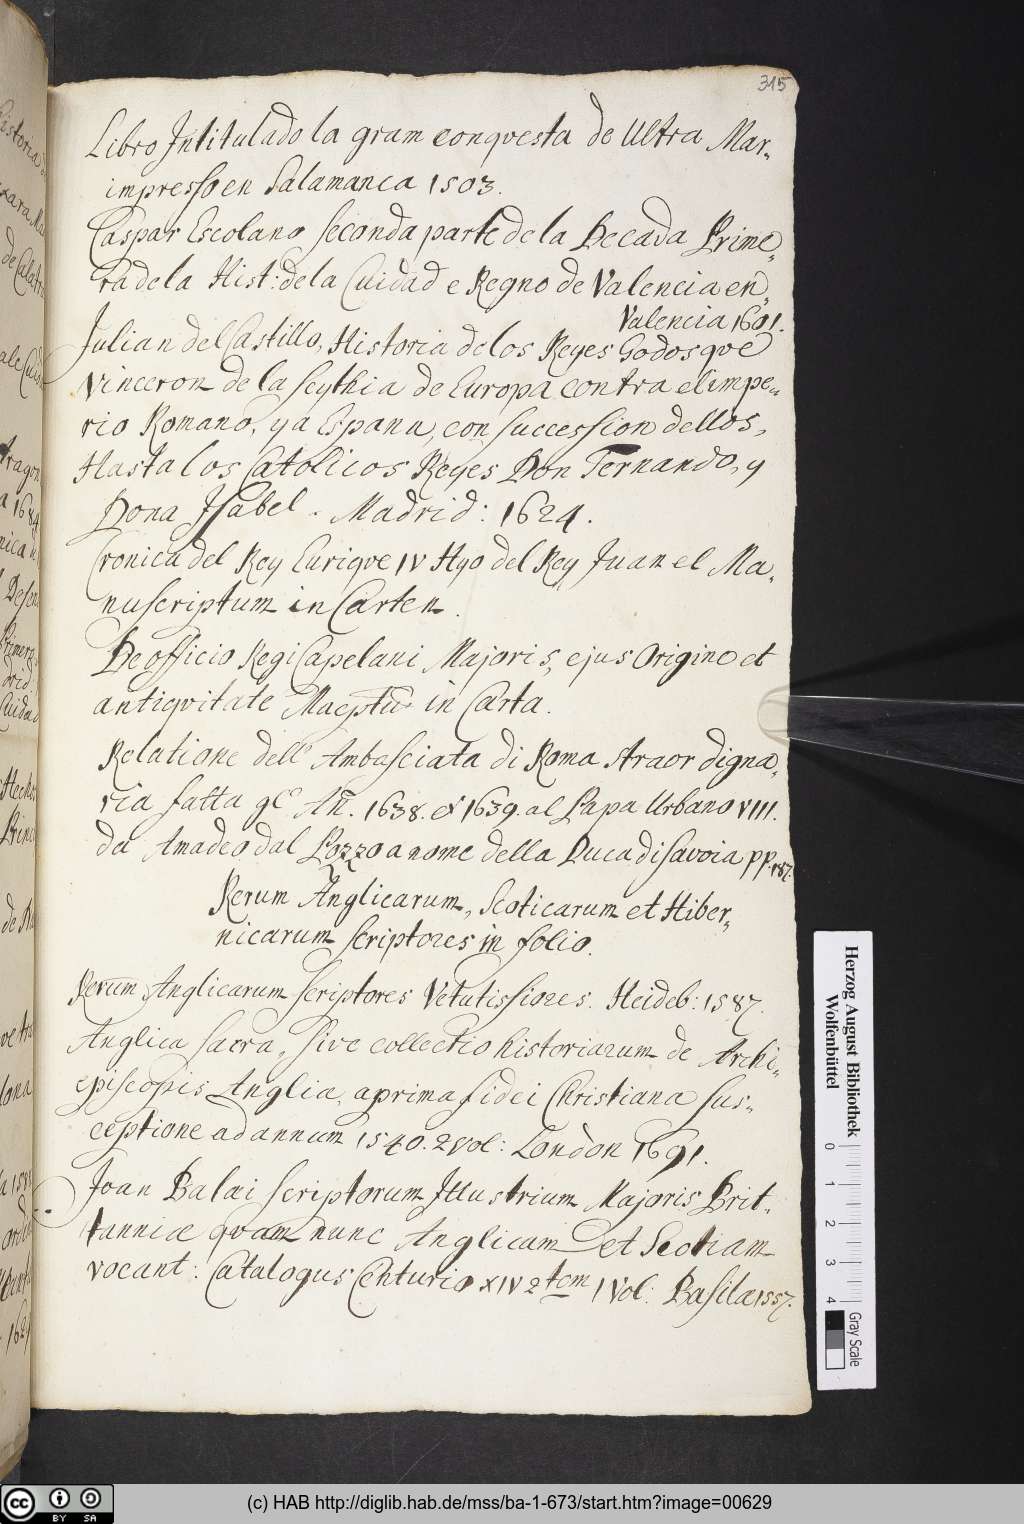 315
Libro Intitulado la gram conqvesta de Ultra Mar„
impresso en Salamanca 1503.
Caspar Escolano seconda parte de la Decada Prime„
ra de la Hist: de la Cuidad e Regno de Valencia en„
Valencia 1601.
Julian del Castillo, Historia de los Reyes Godos qve
Vinceron de la Scythia de Europa contra el impe„
rio Romano, y a Espanu, con succession dellos,
Hasta los Catolicos Reyes Don Fernando, y
Dona Isabel. Madrid: 1624.
Cronica del Rey Enriqve IV Hyo del Rey Juan el Ma„
nuscriptum in Carten.
De officio Regi Capelani Majoris, ejus Origine et
antiqvitate Mscptū in Carta.
Relatione dell' Ambasciata di Roma Araor digna„
ria fatta gl' Añ. 1638. et 1639. al Papa Urbano VIII.
da Amadeo dal Pozzo a nome della Duca di Savoia pp. 187.
Rerum Anglicarum, Scoticarum et Hiber„
nicarum scriptores in folio.
Rerum Anglicarum scriptores Vetutissiores. Heideb: 1587.
Anglica sacra, sive collectio historiarum de Archi„
episcopis Anglia, a prima fidei Christiana sus„
ceptione ad annum 1540. 2 vol: London 1691.
Joan Balai scriptorum Illustrium Majoris Brit„
tanniæ qvam nunc Anglicam et Scotiam
vocant: Catalogus Centurio XIV 2 tom 1 Vol: Basila 1557.
Herzog August Bibliothek
Wolfenbüttel
0 1 2 3 4
Gray Scale
BY SA
(c) HAB http://diglib.hab.de/mss/ba-1-673/start.htm?image=00629